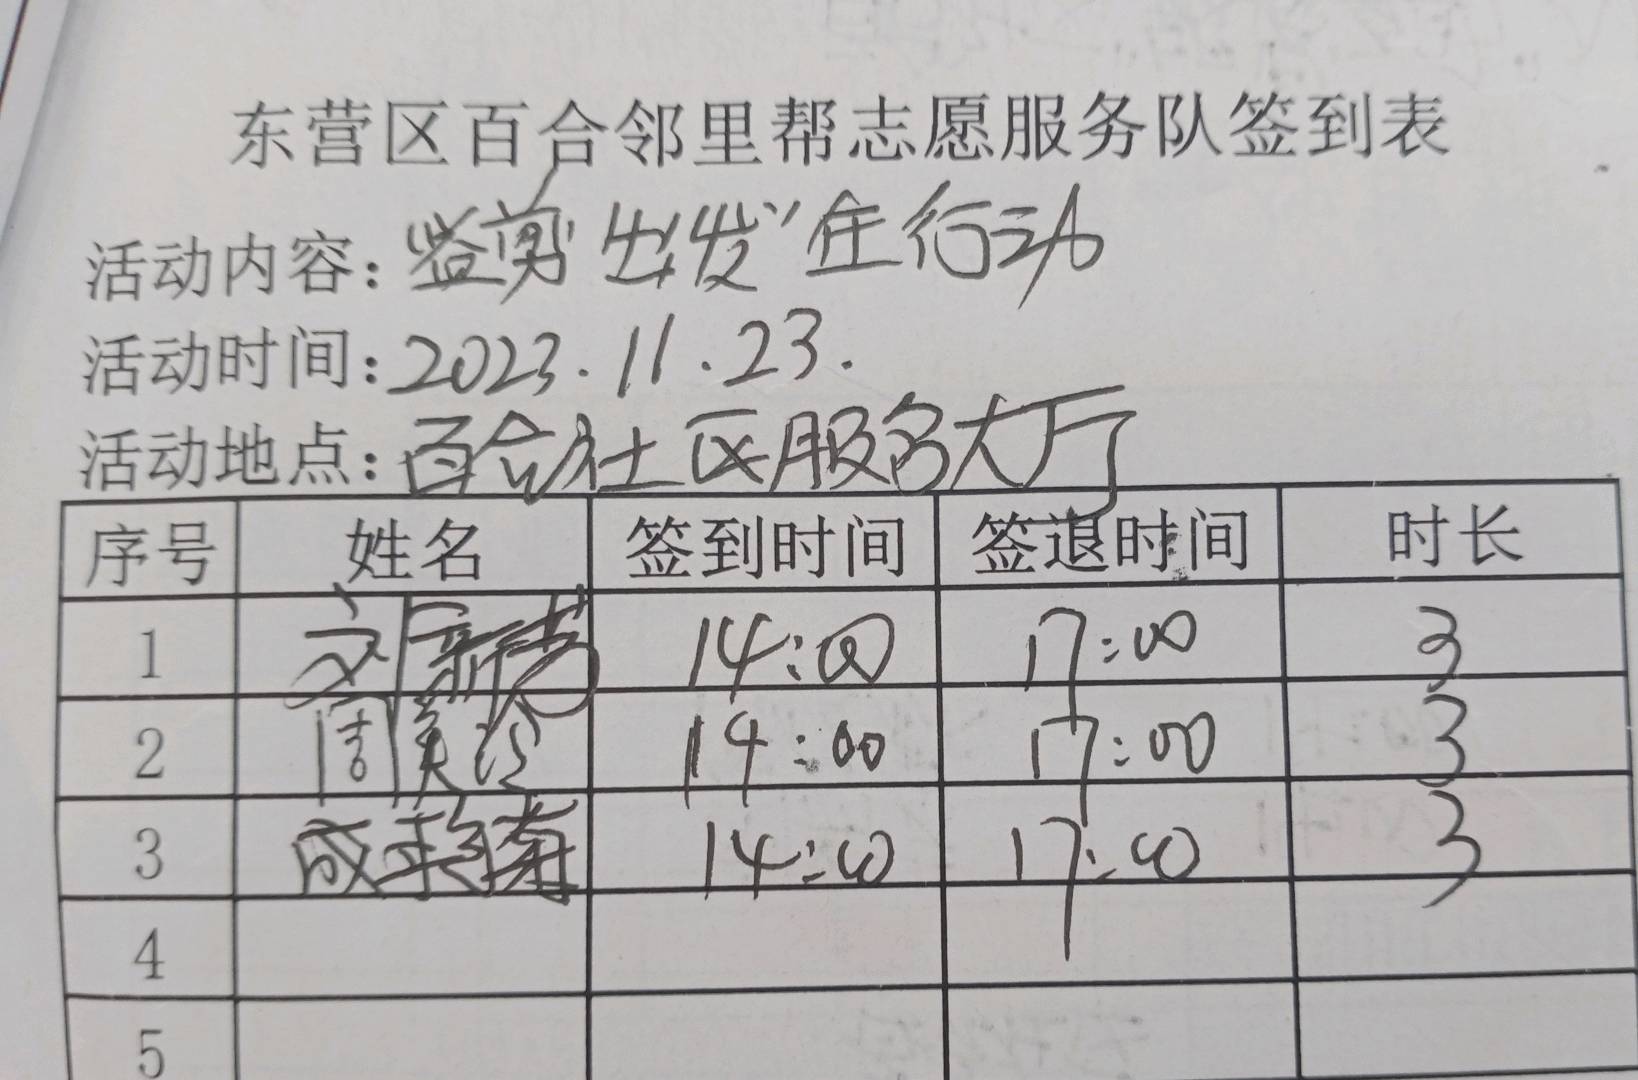 东营区百合邻里帮志愿服务队签到表
活动内容：“益剪出发”在行动
活动时间：2023.11.23.
活动地点：百合社区服务大厅
序号 姓名 签到时间 签退时间 时长
1 刘新芳 14:00 17:00 3
2 周美玲 14:00 17:00 3
3 成 14:00 17:00 3
4
5